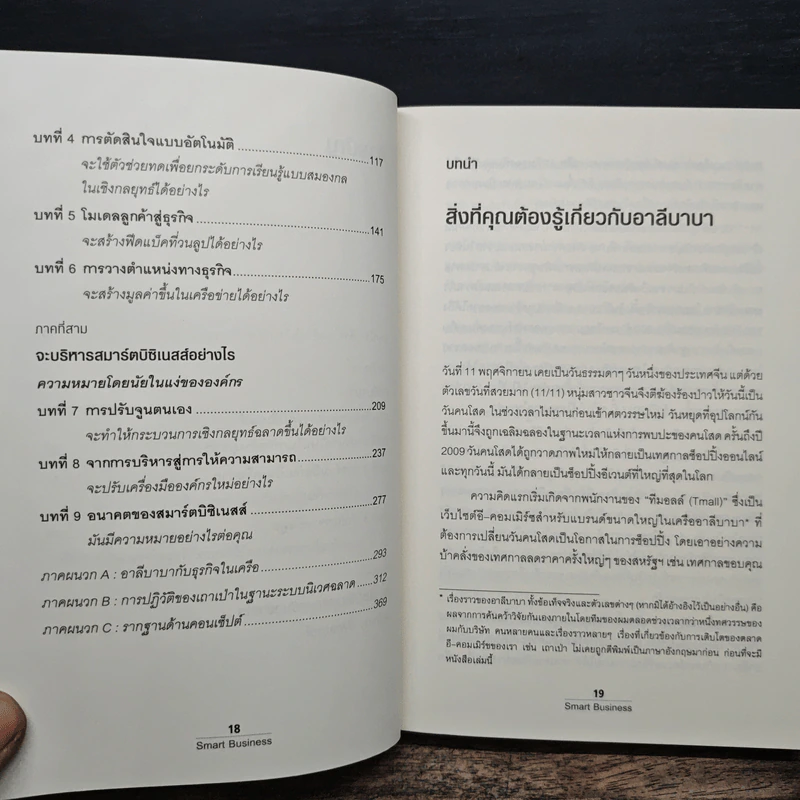 บทที่ 4 การตัดสินใจแบบอัตโนมัติ ........ 117
จะใช้ตัวช่วยทดเพื่อยกระดับการเรียนรู้แบบสมองกล
ในเชิงกลยุทธ์ได้อย่างไร
บทที่ 5 โมเดลลูกค้าสู่ธุรกิจ ........ 141
จะสร้างฟีดแบ็คที่วนลูปได้อย่างไร
บทที่ 6 การวางตำแหน่งทางธุรกิจ ........ 175
จะสร้างมูลค่าขึ้นในเครือข่ายได้อย่างไร
ภาคที่สาม
จะบริหารสมาร์ตบิซิเนสส์อย่างไร
ความหมายโดยนัยในแง่ขององค์กร
บทที่ 7 การปรับจูนตนเอง ........ 209
จะทำให้กระบวนการเชิงกลยุทธ์ฉลาดขึ้นได้อย่างไร
บทที่ 8 จากการบริหารสู่การให้ความสามารถ ........ 237
จะปรับเครื่องมือองค์กรใหม่อย่างไร
บทที่ 9 อนาคตของสมาร์ตบิซิเนสส์ ........ 277
มันมีความหมายอย่างไรต่อคุณ
ภาคผนวก A : อาลีบาบากับธุรกิจในเครือ ........ 293
ภาคผนวก B : การปฏิวัติของเถาเป่าในฐานะระบบนิเวศฉลาด ........ 312
ภาคผนวก C : รากฐานด้านคอนเซ็ปต์ ........ 369
18
Smart Business
บทนำ
สิ่งที่คุณต้องรู้เกี่ยวกับอาลีบาบา
วันที่ 11 พฤศจิกายน เคยเป็นวันธรรมดาๆ วันหนึ่งของประเทศจีน แต่ด้วย
ตัวเลขวันที่สวยมาก (11/11) หนุ่มสาวชาวจีนจึงตีฆ้องร้องป่าวให้วันนี้เป็น
วันคนโสด ในช่วงเวลาไม่นานก่อนเข้าศตวรรษใหม่ วันหยุดที่อุปโลกน์กัน
ขึ้นมานี้จึงถูกเฉลิมฉลองในฐานะเวลาแห่งการพบปะของคนโสด ครั้นถึงปี
2009 วันคนโสดได้ถูกวาดภาพใหม่ให้กลายเป็นเทศกาลช็อปปิ้งออนไลน์
และทุกวันนี้ มันได้กลายเป็นช็อปปิ้งอีเวนต์ที่ใหญ่ที่สุดในโลก
ความคิดแรกเริ่มเกิดจากพนักงานของ "ทีมอลล์ (Tmall)" ซึ่งเป็น
เว็บไซต์อี-คอมเมิร์ซสำหรับแบรนด์ขนาดใหญ่ในเครืออาลีบาบา* ที่
ต้องการเปลี่ยนวันคนโสดเป็นโอกาสในการช็อปปิ้ง โดยเอาอย่างความ
บ้าคลั่งของเทศกาลลดราคาครั้งใหญ่ๆ ของสหรัฐฯ เช่น เทศกาลขอบคุณ
* เรื่องราวของอาลีบาบา ทั้งข้อเท็จจริงและตัวเลขต่างๆ (หากมิได้อ้างอิงไว้เป็นอย่างอื่น) คือ
ผลจากการค้นคว้าวิจัยกันเองภายในโดยทีมของผมตลอดช่วงเวลากว่าหนึ่งทศวรรษของ
ผมกับบริษัท คนหลายคนและเรื่องราวหลายๆ เรื่องที่เกี่ยวข้องกับการเติบโตของตลาด
อี-คอมเมิร์ซของเรา เช่น เถาเป่า ไม่เคยถูกตีพิมพ์เป็นภาษาอังกฤษมาก่อน ก่อนที่จะมี
หนังสือเล่มนี้
19
Smart Business